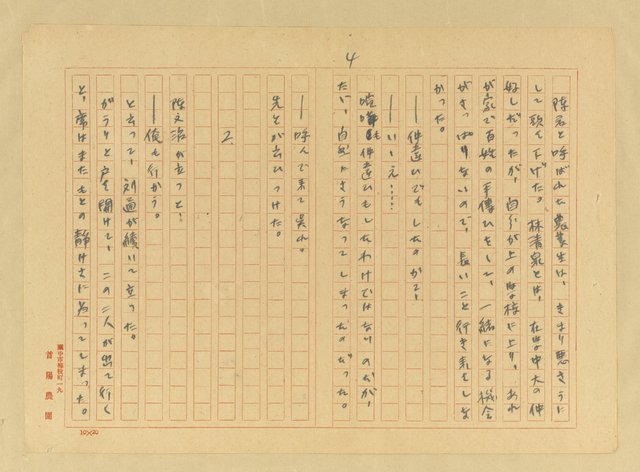 4
陳君と呼ばれた農業生は、きまり悪さうに
して頭を下げた。林清泉とは、在学中大の仲
好しだったが、自分が上の学校に上り、あれ
が家で百姓の手傳ひをして、一緒になる機会
がさっぱりないので、長いこと行き来をしな
かった。
――仲違ひでもしたのか？
――いいえ……
喧嘩も仲違ひもしたわけではないのだが、
たゞ、自然にさうなってしまったのだった。
――呼んで来て呉れ。
先生が云ひつけた。
2
陳文治が立つと、
――俺も行かう。
と云って、刘通が續いて立った。
がらりと戸を開けて、この二人が出て行く
と、席はまたもとの静けさに為ってしまった。
臺中市梅枝町一九
首陽農園
10×20